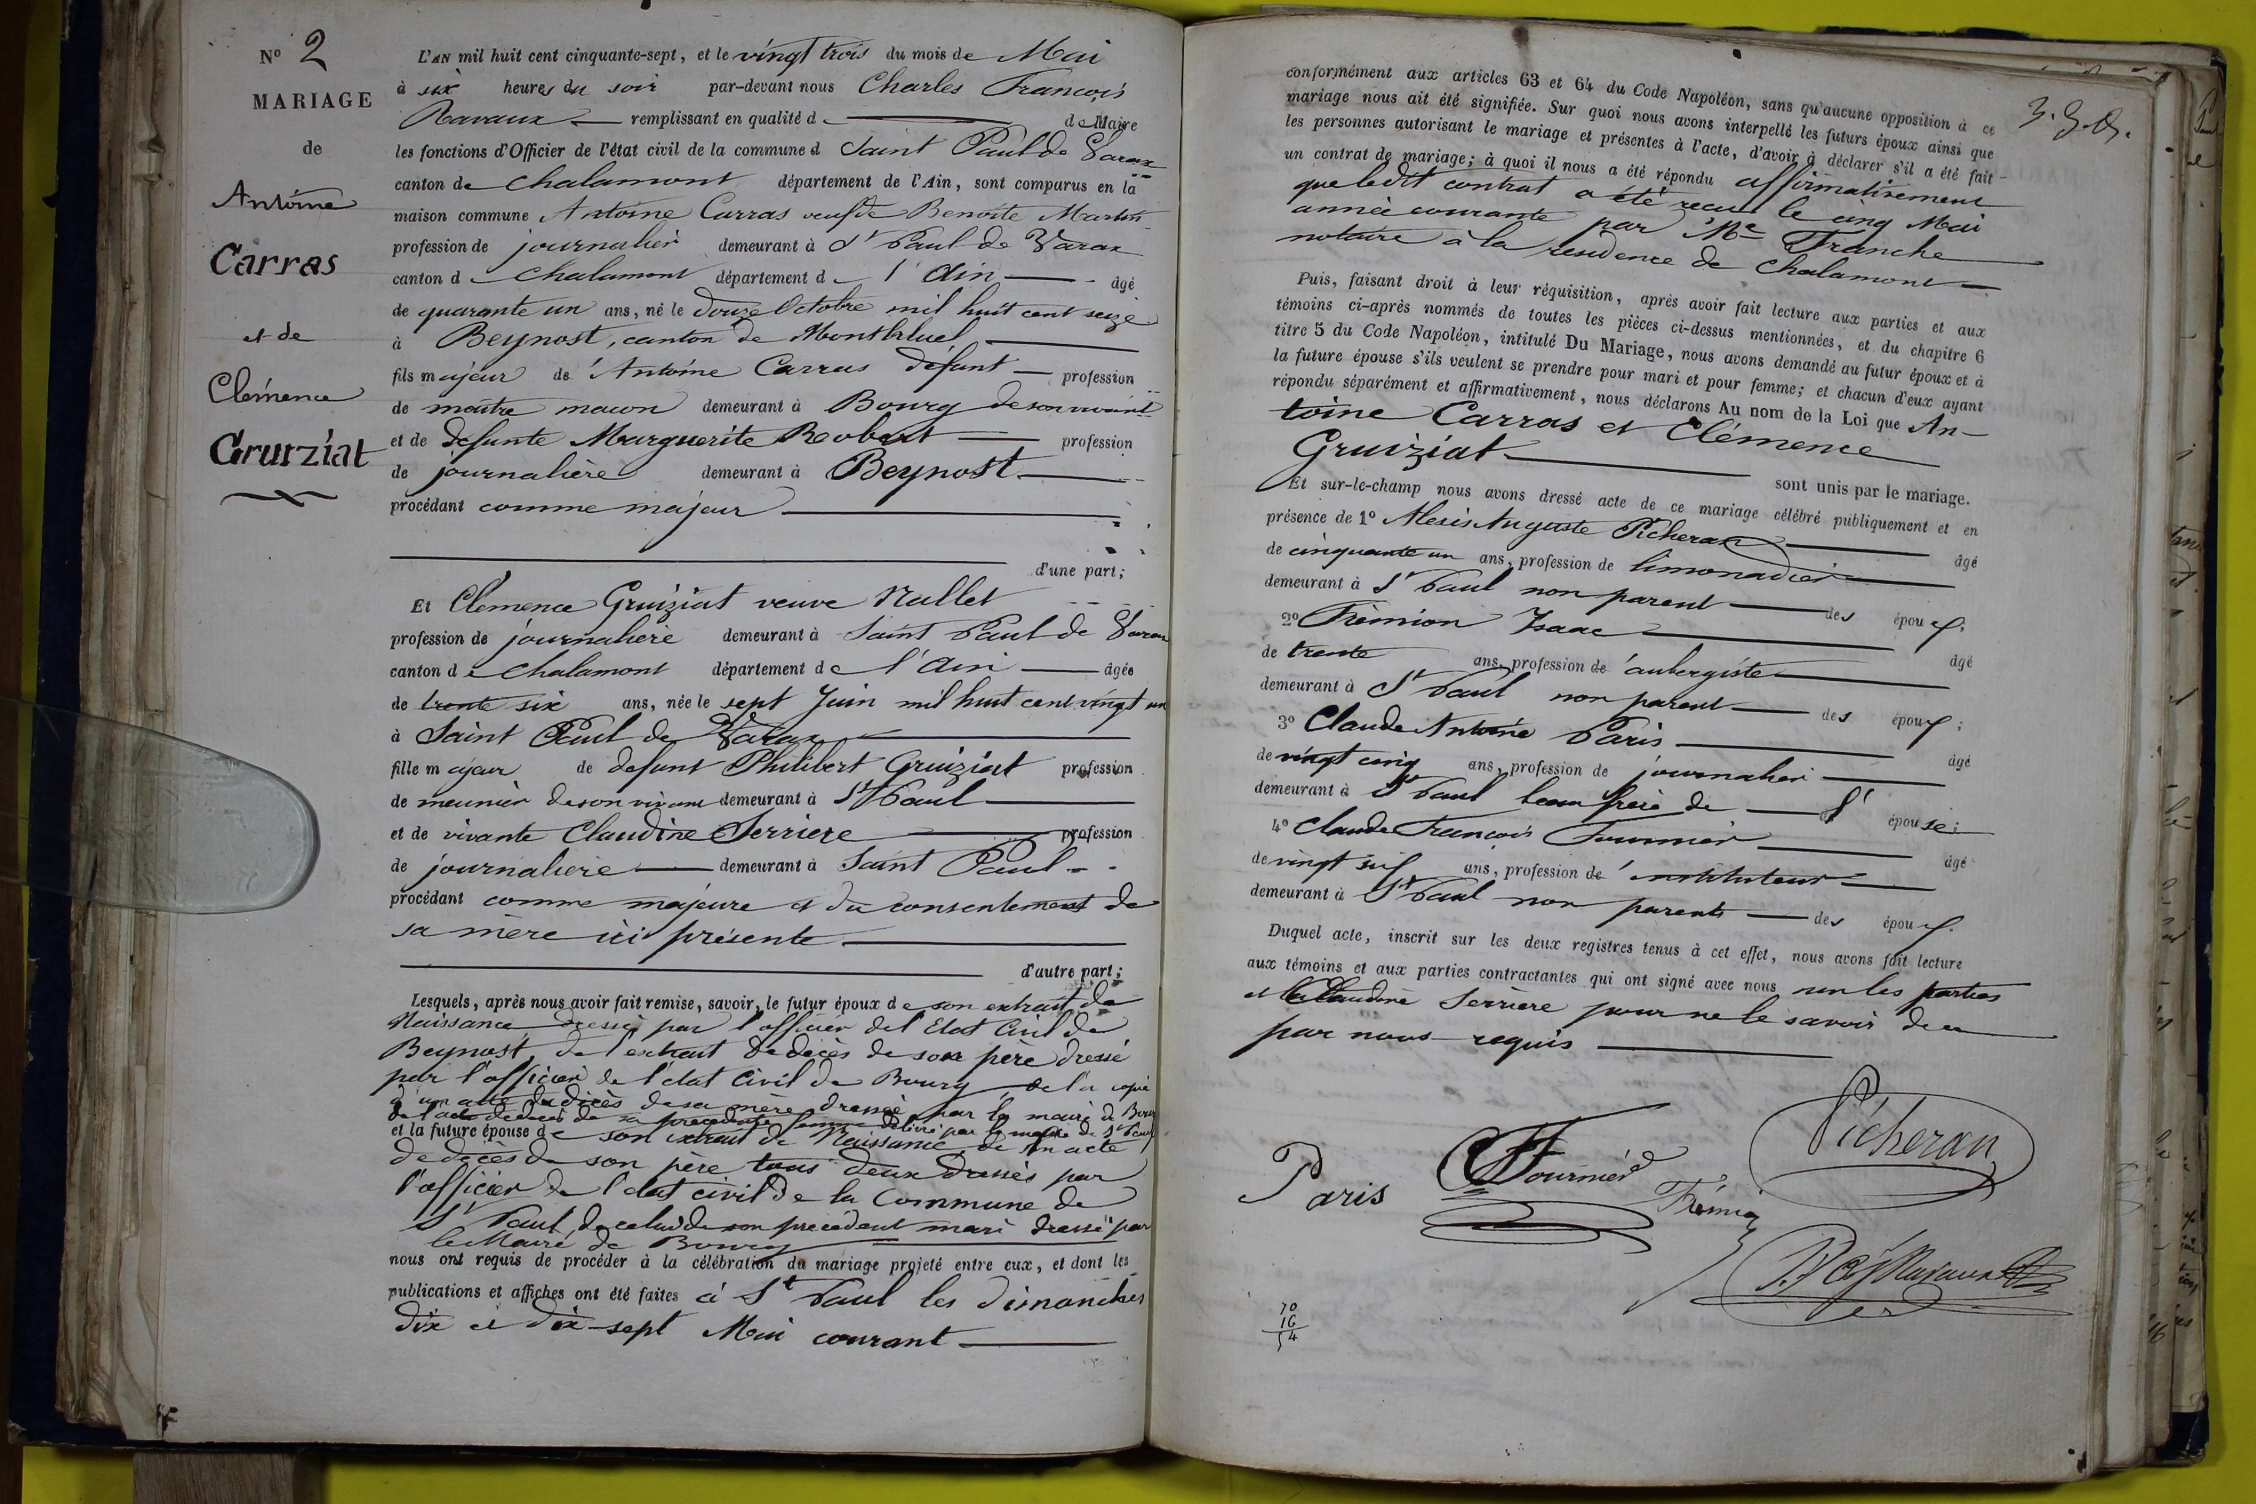 N° 2
MARIAGE
de
Antoine
Carras
et de
Clémence
Gruiziat
L'AN mil huit cent cinquante-sept, et le vingt trois du mois de Mai
à six heures du soir par-devant nous Charles François
Ravaux remplissant en qualité d de Maire
les fonctions d'Officier de l'état civil de la commune d Saint Paul de Varax
canton de Chalamont département de l'Ain, sont comparus en la
maison commune Antoine Carras veuf de Benoite Martin
profession de journalier demeurant à St Paul de Varax
canton d Chalamont département d l'Ain âgé
de quarante un ans, né le douze Octobre mil huit cent seize
à Beynost, canton de Montluel
fils majeur de Antoine Carras défunt profession
de maître macon demeurant à Bourg de son vivant
et de defunte Marguerite Robert profession
de journalière demeurant à Beynost
procédant comme majeur
d'une part;
Et Clémence Gruiziat veuve Nallet
profession de journaliere demeurant à Saint Paul de Varax
canton de Chalamont département de l'Ain âgée
de trente six ans, née le sept Juin mil huit cent vingt un
à Saint Paul de Varax
fille majeur de defunt Philibert Gruiziat profession
de meunier de son vivant demeurant à St Paul
et de vivante Claudine Serriere profession
de journaliere demeurant à Saint Paul
procédant comme majeure et du consentement de
sa mère ici présente
d'autre part;
Lesquels, après nous avoir fait remise, savoir, le futur époux de son extrait de
Naissance dressé par l'officier de l'Etat Civil de
Beynost, de l'extrait de décès de son père dressé
par l'officier de l'état Civil de Bourg de la copie
d'un acte de décès de sa mère dressé par le maire de Bourg
de l'acte de décès de sa precedente femme délivré par le maire de St Paul
et la future épouse de son extrait de Naissance, de un acte
de décès de son père tous deux dressés par
l'officier de l'état civil de la Commune de
St Paul, de celui de son precédent mari dressé par
le Maire de Bourg
nous ont requis de procéder à la célébration du mariage projeté entre eux, et dont les
publications et affiches ont été faites à St Paul les dimanches
dix et dix-sept Mai courant
conformément aux articles 63 et 64 du Code Napoléon, sans qu'aucune opposition à ce
mariage nous ait été signifiée. Sur quoi nous avons interpellé les futurs époux ainsi que
les personnes autorisant le mariage et présentes à l'acte, d'avoir à déclarer s'il a été fait
un contrat de mariage; à quoi il nous a été répondu affirmativement
que ledit contrat a été recu le cinq Mai
année courante par Me Franche
notaire à la residence de Chalamont
Puis, faisant droit à leur réquisition, après avoir fait lecture aux parties et aux
témoins ci-après nommés de toutes les pièces ci-dessus mentionnées, et du chapitre 6
titre 5 du Code Napoléon, intitulé Du Mariage, nous avons demandé au futur époux et à
la future épouse s'ils veulent se prendre pour mari et pour femme; et chacun d'eux ayant
répondu séparément et affirmativement, nous déclarons Au nom de la Loi que An-
toine Carras et Clémence
Gruiziat sont unis par le mariage.
Et sur-le-champ nous avons dressé acte de ce mariage célébré publiquement et en
présence de 1° Alexis Auguste Picheran âgé
de cinquante un ans, profession de limonadier
demeurant à St Paul non parent des époux;
2° Frémion Isaac âgé
de trente ans, profession de aubergiste
demeurant à St Paul non parent des époux;
3° Claude Antoine Paris âgé
de vingt cinq ans, profession de journalier
demeurant à St Paul beau frère de l' épouse;
4° Claude François Fournier âgé
de vingt six ans, profession de instituteur
demeurant à St Paul non parent des époux.
Duquel acte, inscrit sur les deux registres tenus à cet effet, nous avons fait lecture
aux témoins et aux parties contractantes qui ont signé avec nous non les parties
et la Claudine Serriere pour ne le savoir de ce
par nous requis
Picheran
Paris Fournier
Frémion
Ravaux
70
16
54